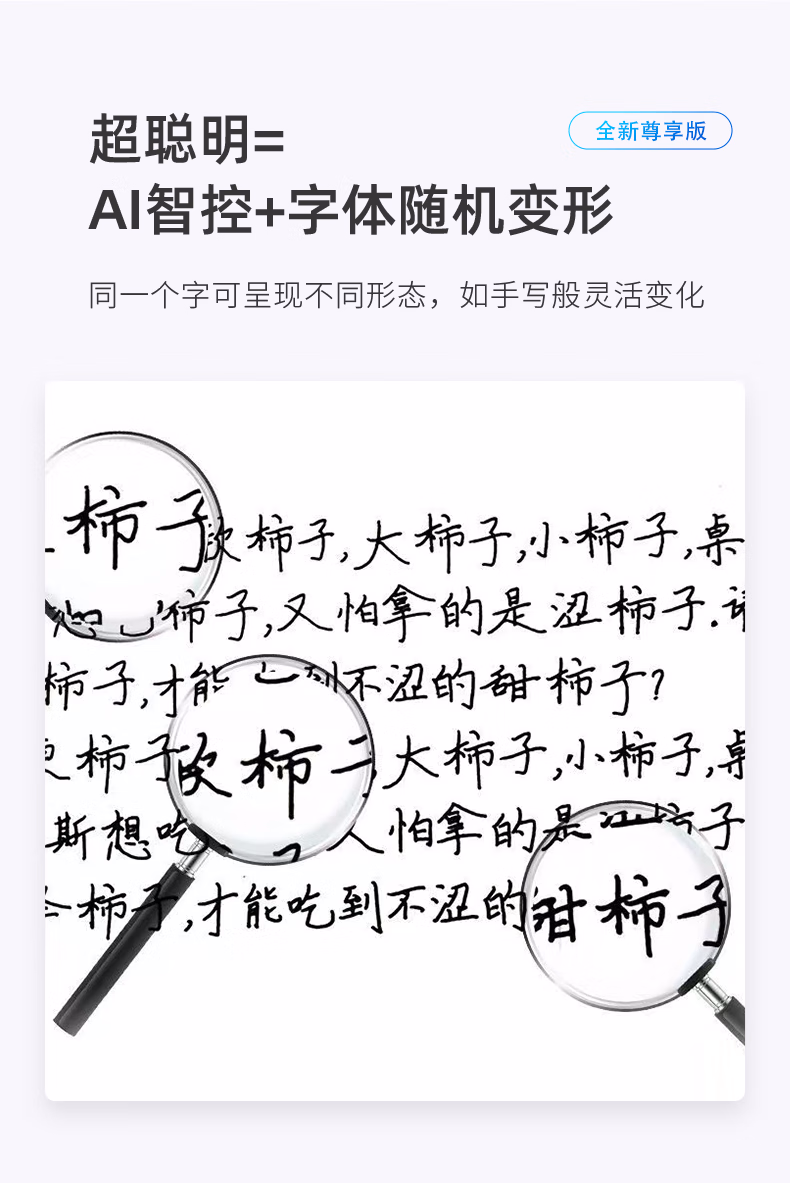 超聪明=
全新尊享版
AI智控+字体随机变形
同一个字可呈现不同形态，如手写般灵活变化
柿子
软柿子,大柿子,小柿子,桌
柿子,又怕拿的是涩柿子.请
柿子,才能 到不涩的甜柿子?
柿子 软柿 大柿子,小柿子,桌
斯想吃 又怕拿的是涩柿子
柿子,才能吃到不涩的甜柿子